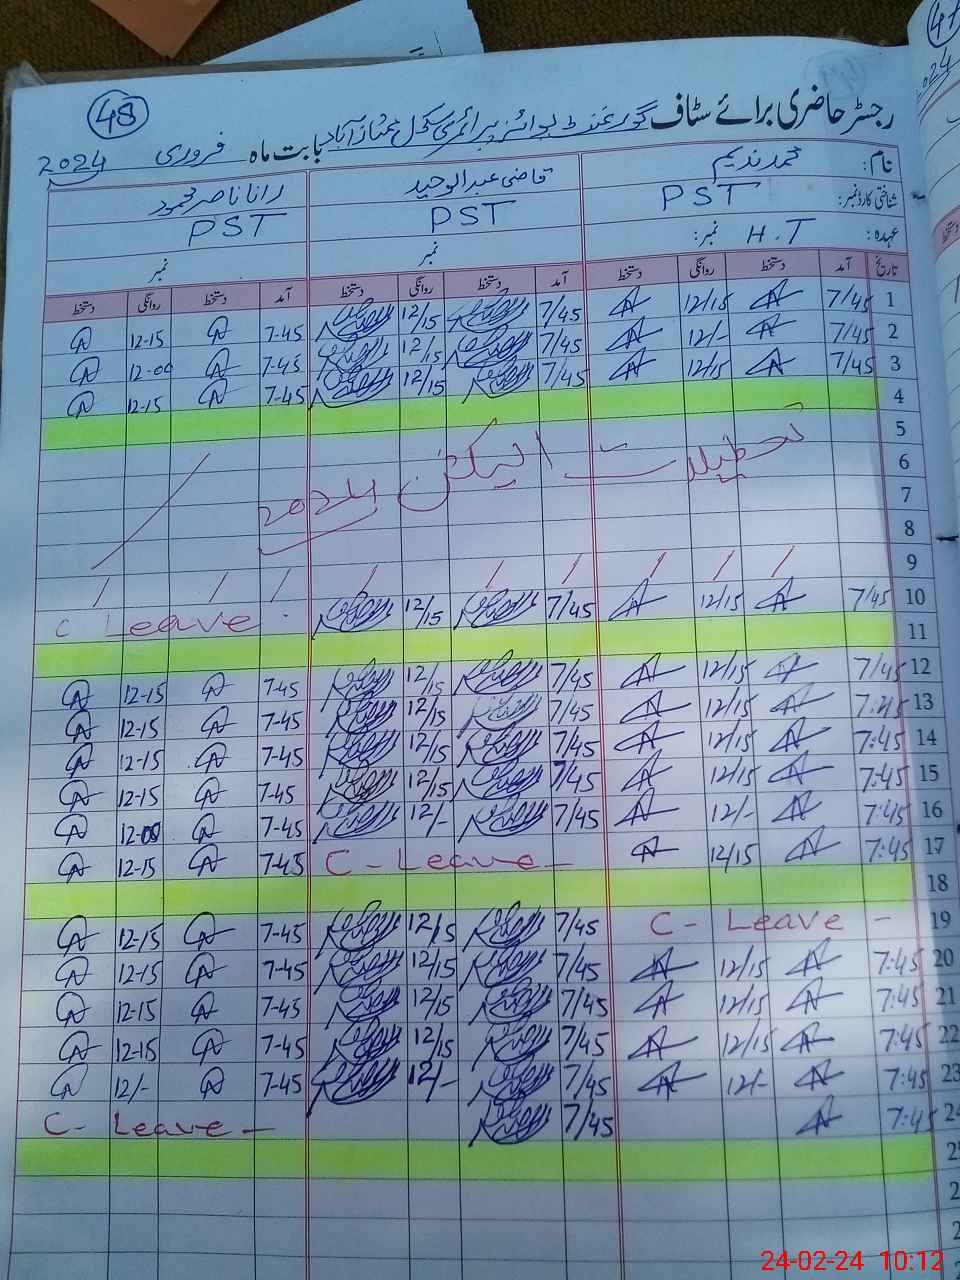 48
رجسٹر حاضری برائے سٹاف گورنمنٹ بوائز پرائمری سکول ممتاز آباد بابت ماہ فروری 2024
نام: محمد ندیم قاضی عبدالوحید رانا ناصر محمود
شناختی کارڈ نمبر: PST PST PST
عہدہ: H.T نمبر: نمبر نمبر
تاریخ آمد دستخط روانگی دستخط آمد دستخط روانگی دستخط آمد دستخط روانگی دستخط
1 7/45 12/15 7/45 12/15 7-45 12-15
2 7/45 12/- 7/45 12/15 7-45 12-00
3 7/45 12/15 7/45 12/15 7-45 12-15
4
5
6 تعطیلات الیکشن 2024
7
8
9
10 7/45 12/15 7/45 12/15 C Leave
11
12 7/45 12/15 7/45 12/15 7-45 12-15
13 7:45 12/15 7/45 12/15 7-45 12-15
14 7:45 12/15 7/45 12/15 7-45 12-15
15 7:45 12/15 7/45 12/15 7-45 12-15
16 7:45 12/- 7/45 12/- 7-45 12-00
17 7:45 12/15 C - Leave - 7-45 12-15
18
19 C - Leave - 7/45 12/15 7-45 12-15
20 7:45 12/15 7/45 12/15 7-45 12-15
21 7:45 12/15 7/45 12/15 7-45 12-15
22 7:45 12/15 7/45 12/15 7-45 12-15
23 7:45 12/- 7/45 12/- 7-45 12/-
24 7:45 7/45 C- Leave -
24-02-24 10:12